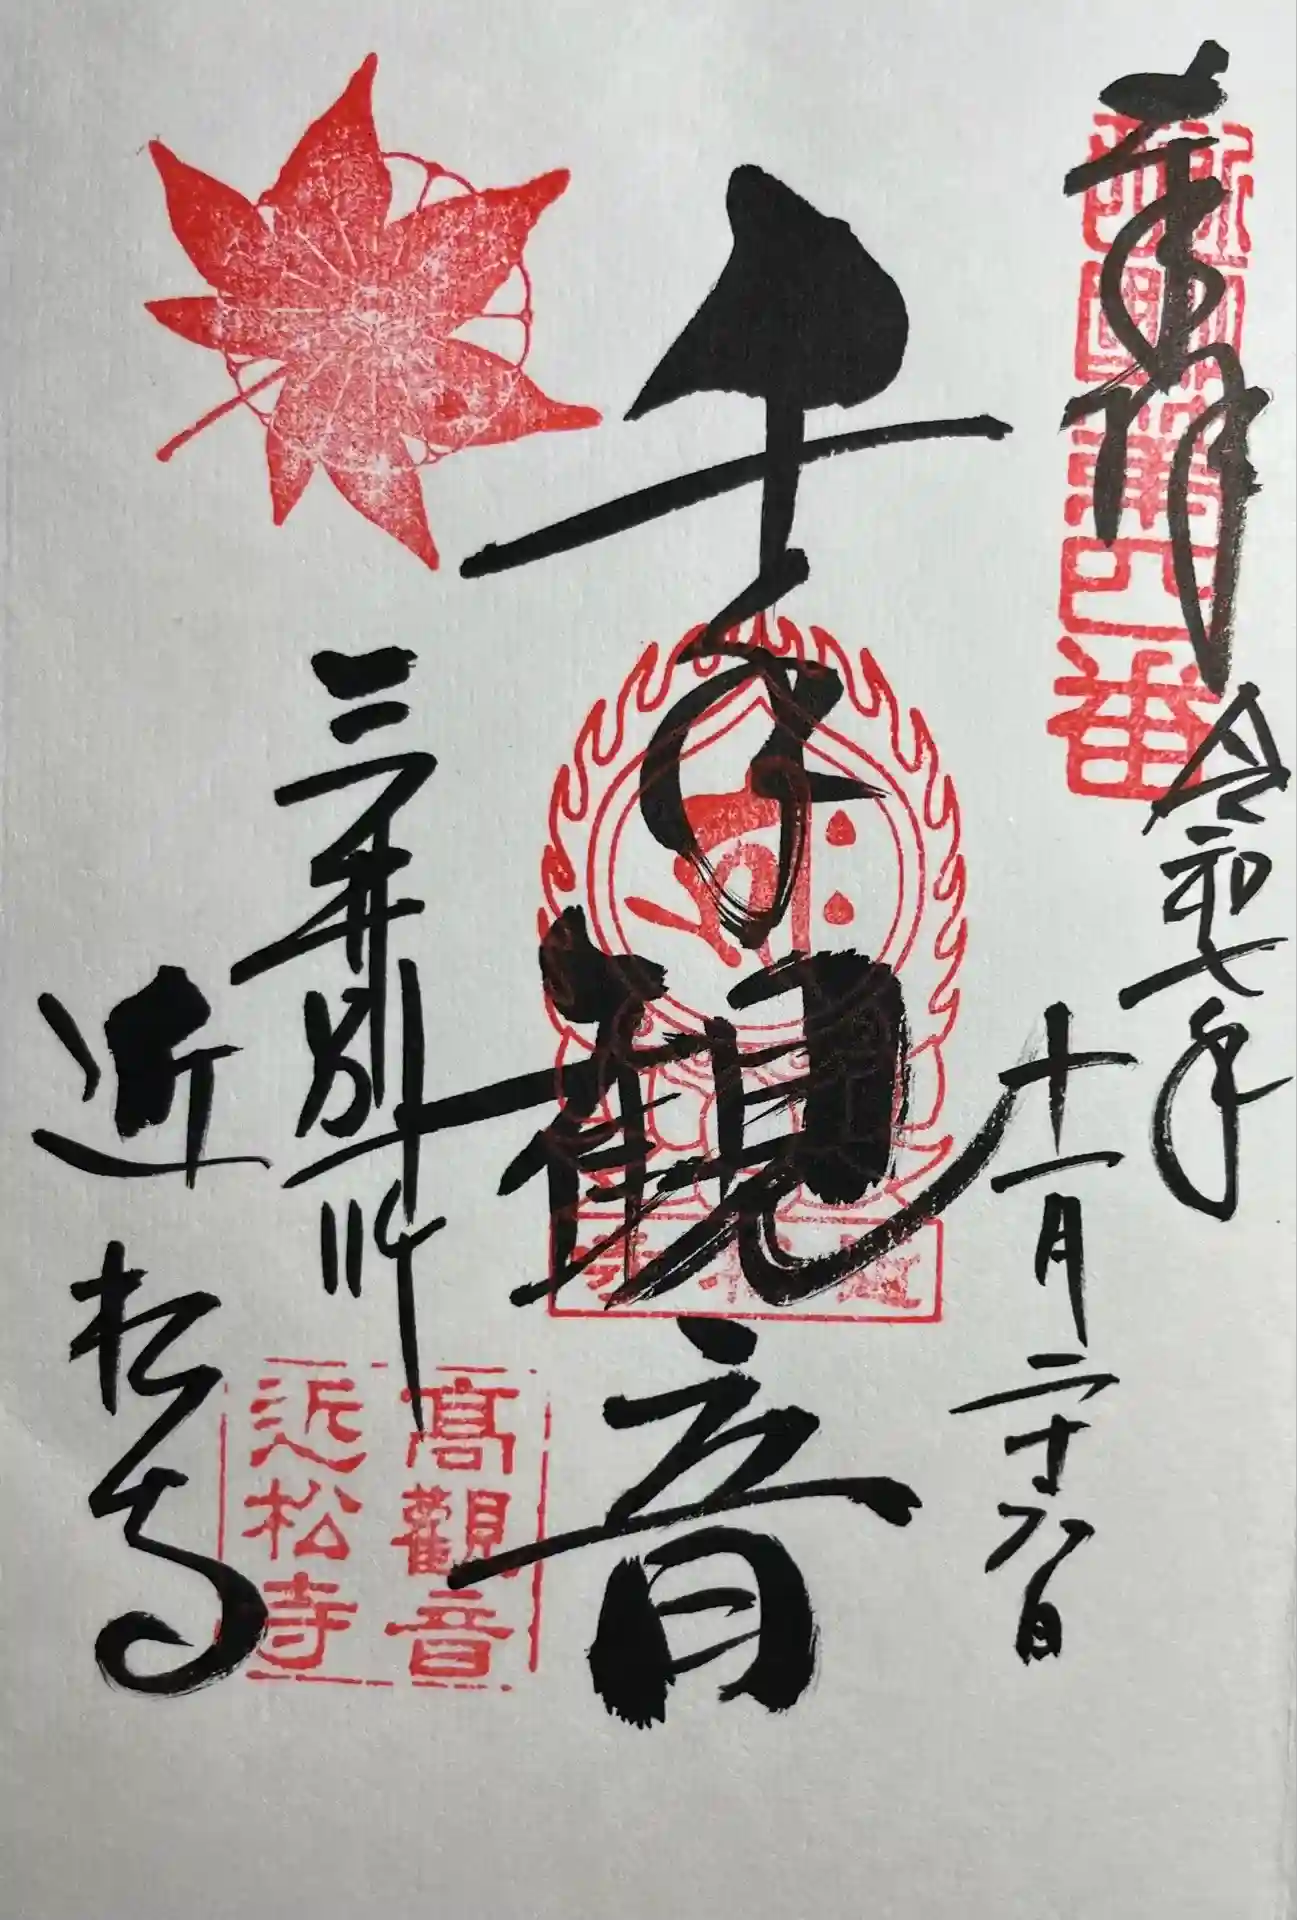 奉拝
近江国第四番
令和七年
十一月二十八日
千手観音
三井別所
近松寺
高觀音
近松寺